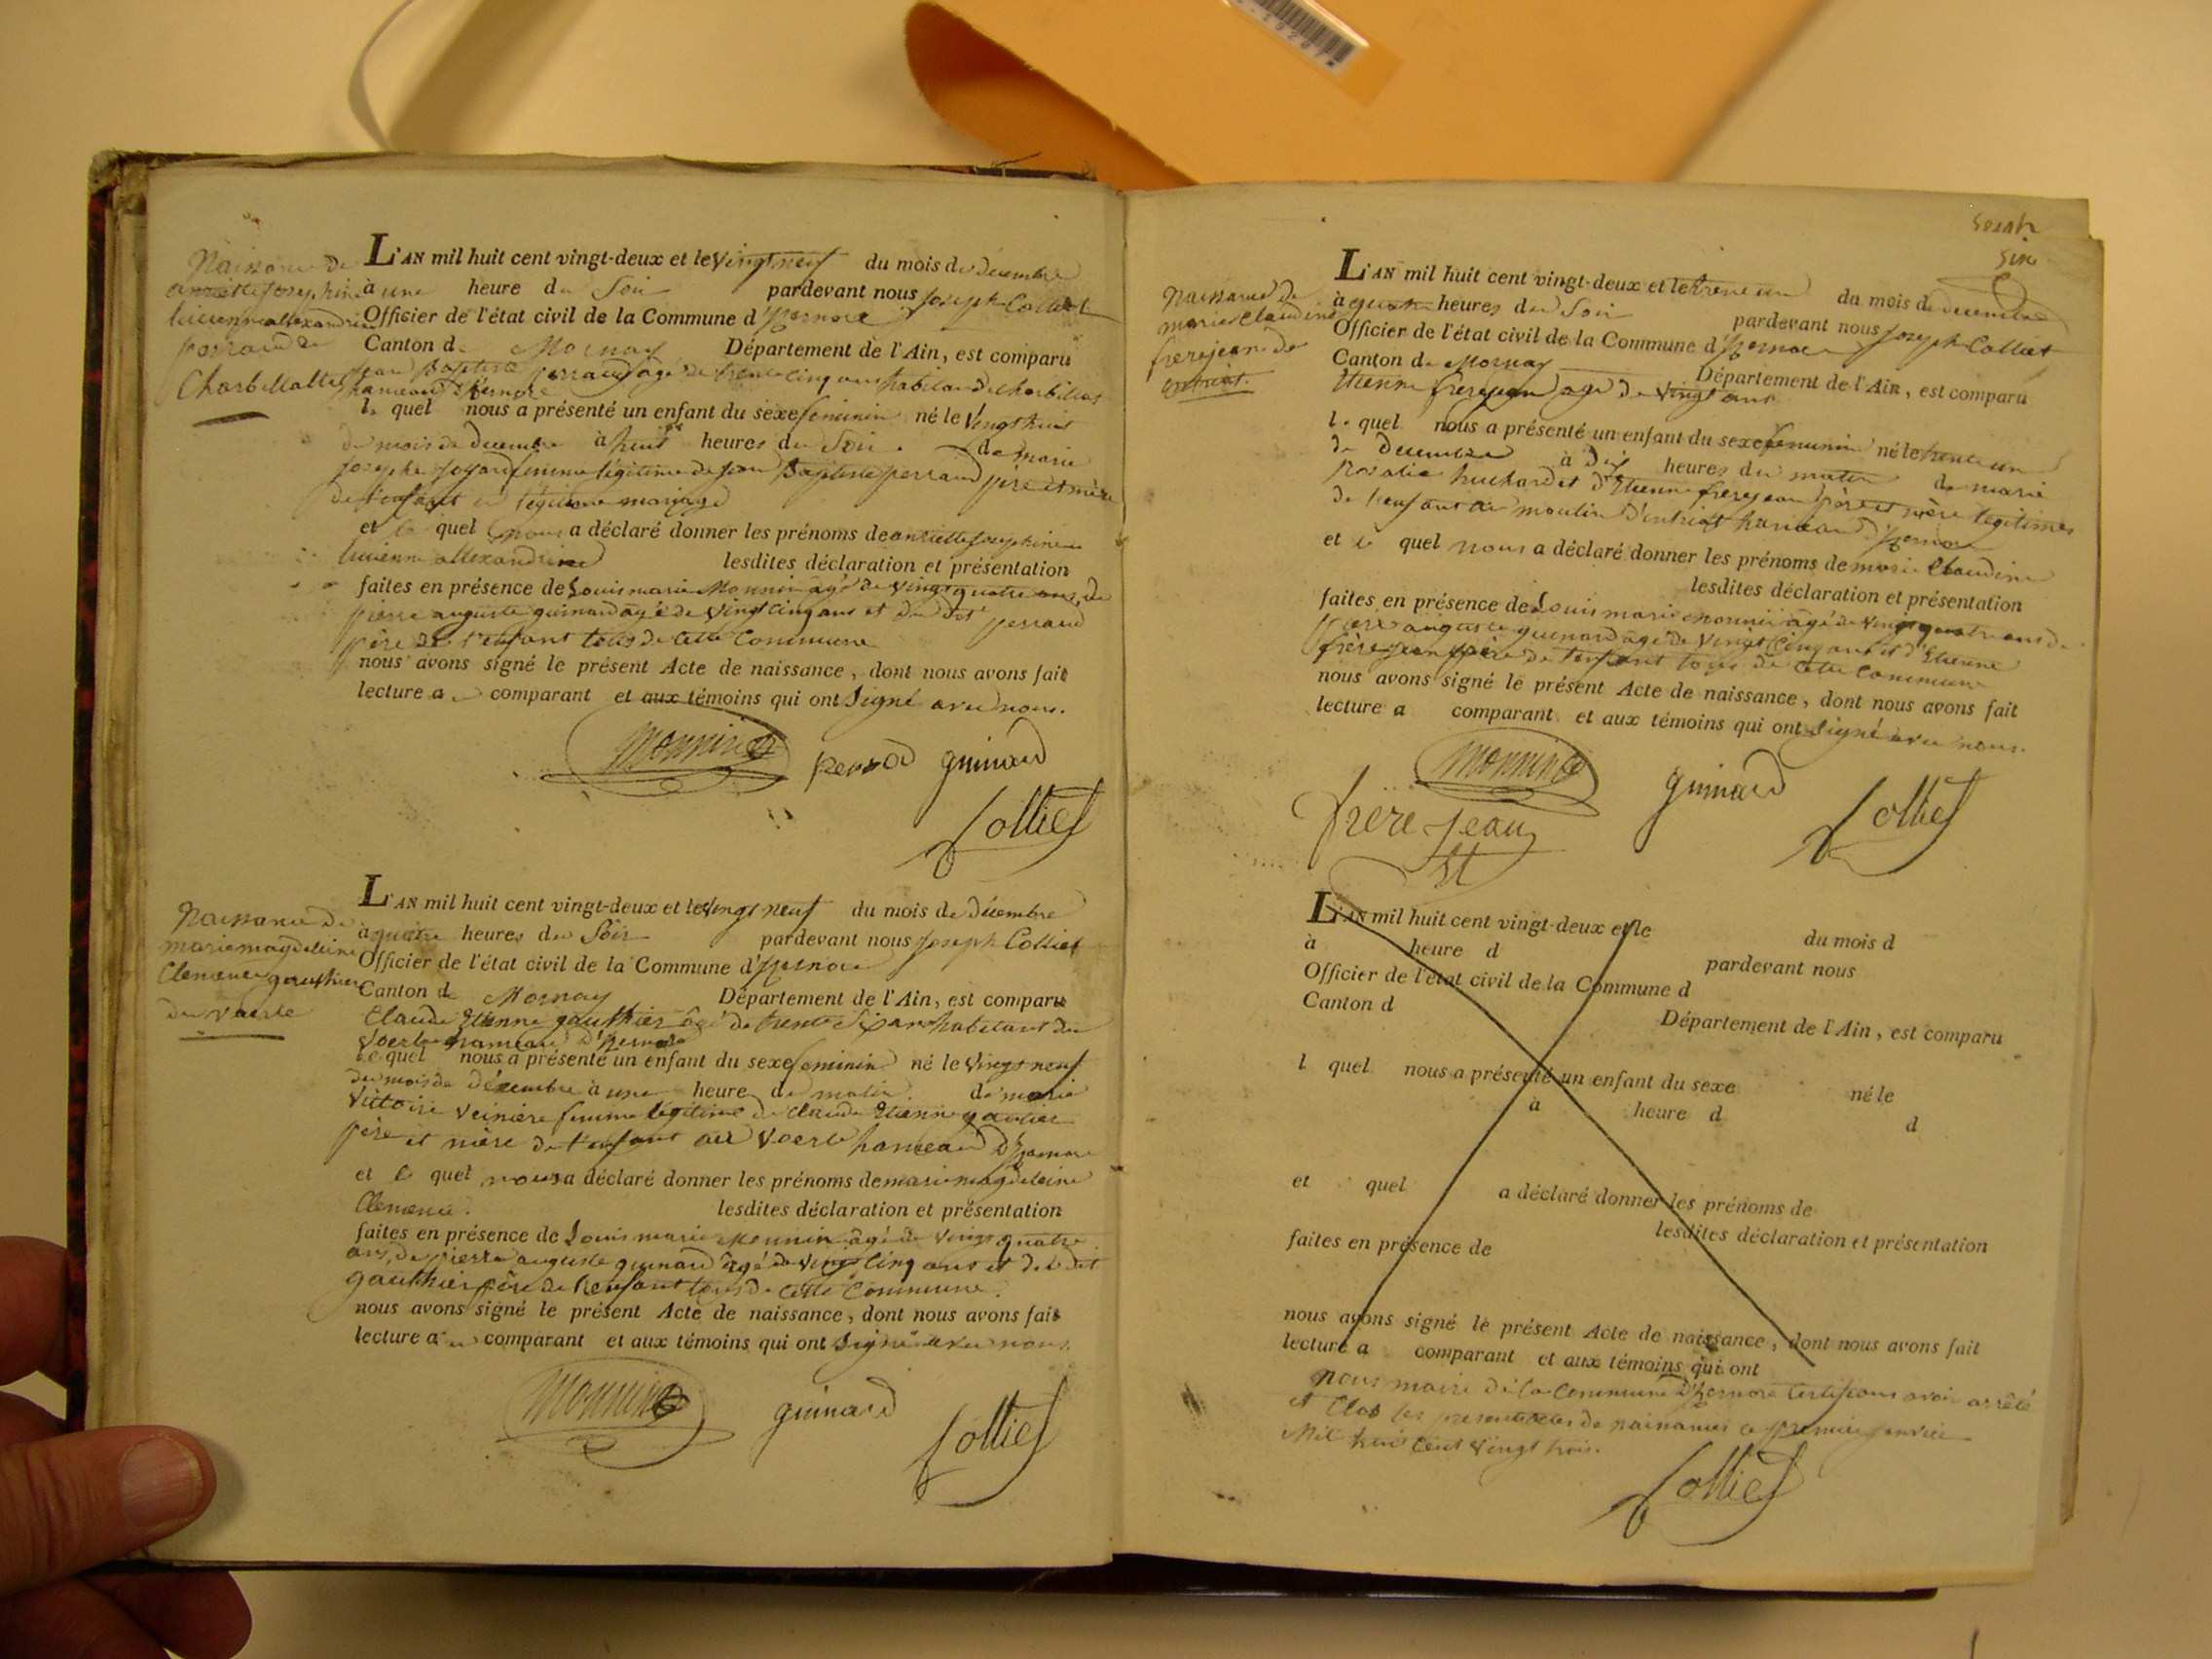 Naissance de
annette Josephine
lucienne allexandrine
perraud de
Charbillat
L'AN mil huit cent vingt-deux et le vingt neuf du mois de decembre
à une heure du Soir pardevant nous Joseph Colliet
Officier de l'état civil de la Commune d'Izernore
Canton de Mornay Département de l'Ain, est comparu
jean Baptiste perraud agé de trente cinq ans habitant de charbillat
hameau d'Izernore
le quel nous a présenté un enfant du sexe feminin né le Vingt huit
du mois de decembre à huit heures du Soir de marie
josephe Joyard femme légitime de jean Baptiste perraud père et mère
de l'enfant en légitime mariage
et le quel nous a déclaré donner les prénoms de annette Josephine
lucienne allexandrine lesdites déclaration et présentation
faites en présence de Louis marie Monnin agé de vingt quatre ans, de
pierre auguste guinard agé de vingt cinq ans et du dit perraud
père de l'enfant tous de cette Commune
nous avons signé le présent Acte de naissance, dont nous avons fait
lecture au comparant et aux témoins qui ont Signé avec nous.
Monnin perrod guinard
Colliet
Naissance de
marie magdeleine
Clemence gauthier
du voerle
L'AN mil huit cent vingt-deux et le vingt neuf du mois de décembre
à quatre heures du Soir pardevant nous Joseph Colliet
Officier de l'état civil de la Commune d'Izernore
Canton de Mornay Département de l'Ain, est comparu
Claude Etienne gauthier agé de trente six ans habitant du
voerle hameau d'Izernore
le quel nous a présenté un enfant du sexe feminin né le vingt neuf
du mois de décembre à une heure du matin de marie
Victoire veinière femme légitime de claude Etienne gautier
père et mère de l'enfant au voerle hameau d'Izernore
et le quel nous a déclaré donner les prénoms de marie magdeleine
Clemence. lesdites déclaration et présentation
faites en présence de Louis marie Monnin agé de vingt quatre
ans, de pierre auguste guinard agé de vingt cinq ans et du dit
gauthier père de l'enfant tous de cette Commune.
nous avons signé le présent Acte de naissance, dont nous avons fait
lecture au comparant et aux témoins qui ont Signé avec nous
Monnin guinard Colliet
Six
Naissance de
marie Claudine
frerejean de
intriat.
L'AN mil huit cent vingt-deux et le trente un du mois de decembre
à quatre heures du Soir pardevant nous Joseph Colliet
Officier de l'état civil de la Commune d'Izernore
Canton de Mornay Département de l'Ain, est comparu
Etienne frerejean agé de vingt ans
le quel nous a présenté un enfant du sexe feminin né le trente un
de decembre à Dix heures du matin de marie
Rosalie huchard et d'Etienne frerejean père et mère légitimes
de l'enfant au moulin d'intriat hameau d'Izernore
et le quel nous a déclaré donner les prénoms de marie Claudine
lesdites déclaration et présentation
faites en présence de Louis marie monnin agé de vingt quatre ans de
pierre auguste guinard agé de vingt Cinq ans et d'Etienne
frèrejean père de l'enfant tous de cette Commune
nous avons signé le présent Acte de naissance, dont nous avons fait
lecture a comparant et aux témoins qui ont Signé avec nous.
Monnin guinard Colliet
frère jean
L'AN mil huit cent vingt-deux et le du mois d
à heure d pardevant nous
Officier de l'état civil de la Commune d
Canton d Département de l'Ain, est comparu
l quel nous a présenté un enfant du sexe né le
à heure d d
et quel a déclaré donner les prénoms de
lesdites déclaration et présentation
faites en présence de
nous avons signé le présent Acte de naissance, dont nous avons fait
lecture a comparant et aux témoins qui ont
nous maire de la Commune d'Izernore Certifions avoir arrêté
et Clos les presents actes de naissances ce premier janvier
Mil huit Cent Vingt trois.
Colliet